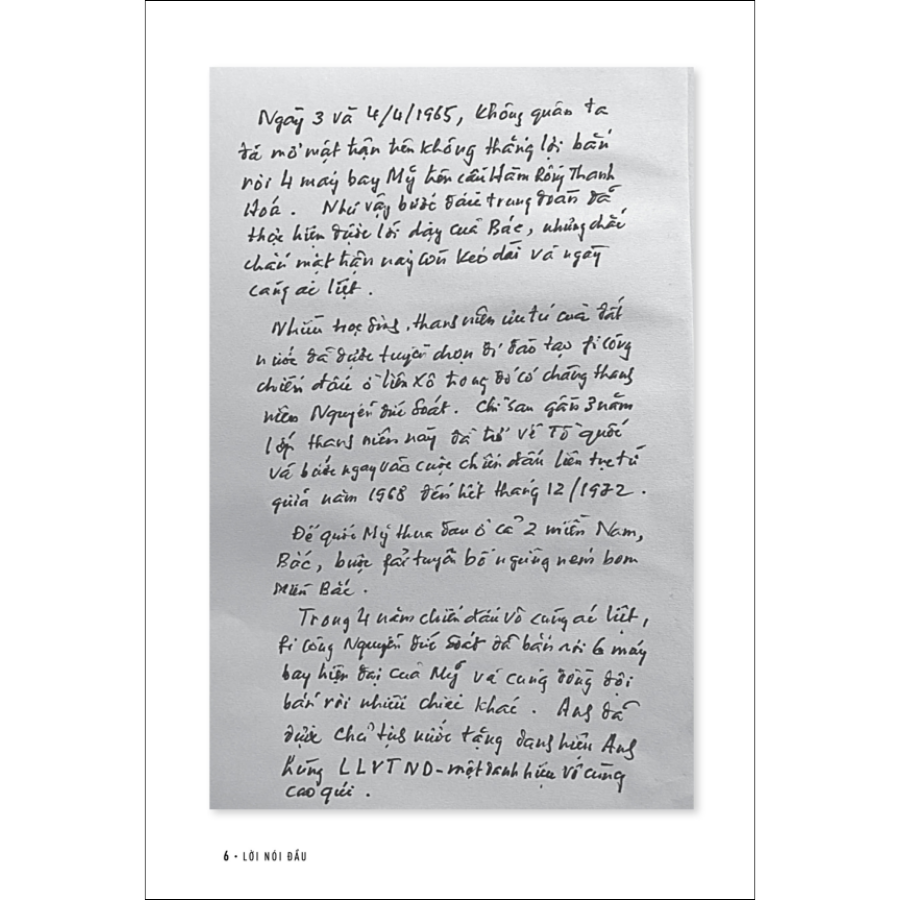 Ngày 3 và 4/4/1965, không quân ta
đã mở mặt trận trên không thắng lợi bắn
rơi 4 máy bay Mỹ trên cầu Hàm Rồng Thanh
Hoá. Như vậy bước đầu trung đoàn đã
thực hiện được lời dạy của Bác, nhưng chắc
chắn mặt trận này còn kéo dài và ngày
càng ác liệt.
Nhiều học sinh, thanh niên ưu tú của đất
nước đã được tuyển chọn đi đào tạo fi công
chiến đấu ở liên Xô trong đó có chàng thanh
niên Nguyễn Đức Soát. Chỉ sau gần 3 năm
lớp thanh niên này đã trở về Tổ quốc
và bước ngay vào cuộc chiến đấu liên tục từ
giữa năm 1968 đến hết tháng 12/1972.
Đế quốc Mỹ thua đau ở cả 2 miền Nam,
Bắc, buộc fải tuyên bố ngừng ném bom
miền Bắc.
Trong 4 năm chiến đấu vô cùng ác liệt,
fi công Nguyễn Đức Soát đã bắn rơi 6 máy
bay hiện đại của Mỹ và cùng đồng đội
bắn rơi nhiều chiếc khác. Anh đã
được Chủ tịch nước tặng danh hiệu Anh
hùng LLVTND - một danh hiệu vô cùng
cao quí.
6 - LỜI NÓI ĐẦU